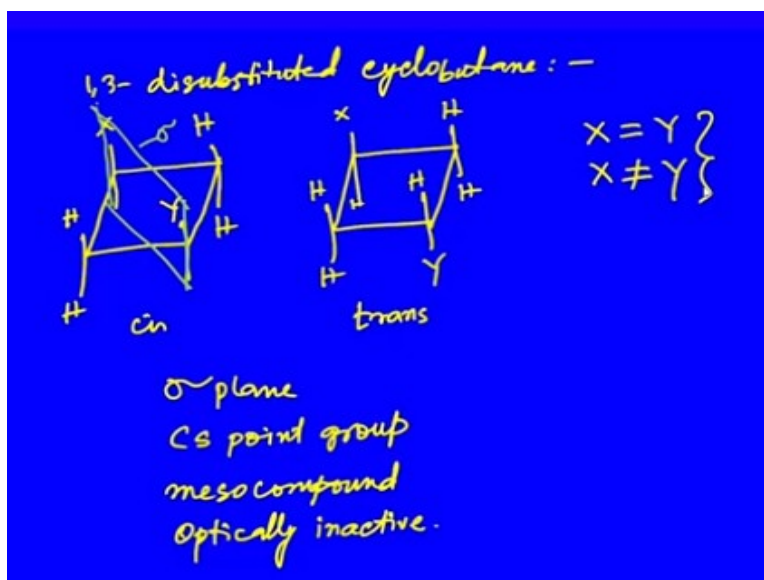 1,3- disubstituted cyclobutane : -
X H X H X = Y
σ X ≠ Y
H Y H H H H
H cis H Y trans
σ plane
Cs point group
mesocompound
Optically inactive.